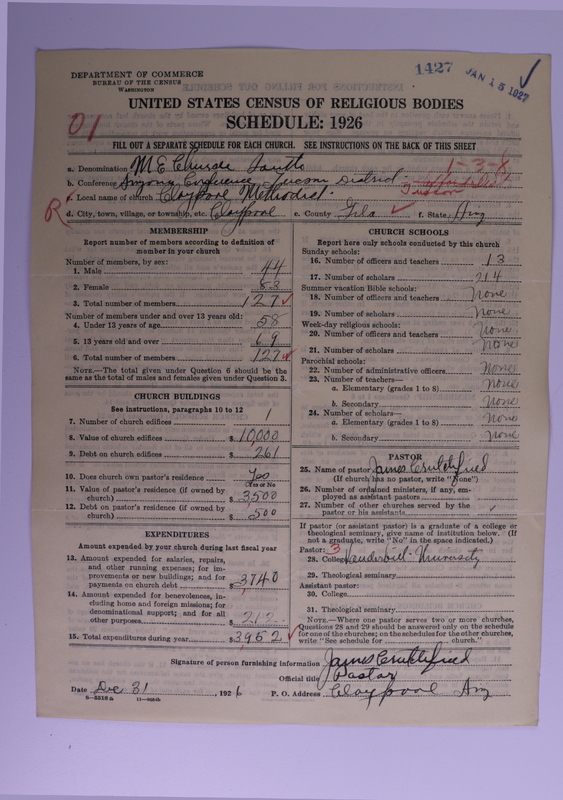 1427 JAN 15 1927
DEPARTMENT OF COMMERCE
BUREAU OF THE CENSUS
WASHINGTON
UNITED STATES CENSUS OF RELIGIOUS BODIES
SCHEDULE: 1926
01
FILL OUT A SEPARATE SCHEDULE FOR EACH CHURCH. SEE INSTRUCTIONS ON THE BACK OF THIS SHEET
a. Denomination M E Church South 1-3-8
b. Conference Arizona Conference Tucson District
Tucson
c. Local name of church Claypool Methodist
R d. City, town, village, or township, etc. Claypool e. County Gila f. State Ariz
MEMBERSHIP
Report number of members according to definition of
member in your church
Number of members, by sex:
1. Male 44
2. Female 83
3. Total number of members 127
Number of members under and over 13 years old:
4. Under 13 years of age 58
5. 13 years old and over 69
6. Total number of members 127
NOTE.—The total given under Question 6 should be the
same as the total of males and females given under Question 3.
CHURCH BUILDINGS
See instructions, paragraphs 10 to 12
7. Number of church edifices 1
8. Value of church edifices $10,000
9. Debt on church edifices $261
10. Does church own pastor's residence? Yes
Yes or No
11. Value of pastor's residence (if owned by
church) $3,500
12. Debt on pastor's residence (if owned by
church) $500
EXPENDITURES
Amount expended by your church during last fiscal year
13. Amount expended for salaries, repairs,
and other running expenses; for im-
provements or new buildings; and for
payments on church debt $3740
14. Amount expended for benevolences, in-
cluding home and foreign missions; for
denominational support; and for all
other purposes $212
15. Total expenditures during year $3952
CHURCH SCHOOLS
Report here only schools conducted by this church
Sunday schools:
16. Number of officers and teachers 13
17. Number of scholars 214
Summer vacation Bible schools:
18. Number of officers and teachers None
19. Number of scholars None
Week-day religious schools:
20. Number of officers and teachers None
21. Number of scholars None
Parochial schools:
22. Number of administrative officers None
23. Number of teachers—
a. Elementary (grades 1 to 8) None
b. Secondary None
24. Number of scholars—
a. Elementary (grades 1 to 8) None
b. Secondary None
PASTOR
25. Name of pastor James Crutchfield
(If church has no pastor, write "None")
26. Number of ordained ministers, if any, em-
ployed as assistant pastors
27. Number of other churches served by the
pastor or his assistants
If pastor (or assistant pastor) is a graduate of a college or
theological seminary, give name of institution below. (If
not a graduate, write "No" in the space indicated.)
Pastor: 3
28. College Vanderbilt University
29. Theological seminary
Assistant pastor:
30. College
31. Theological seminary
NOTE.—Where one pastor serves two or more churches,
Questions 28 and 29 should be answered only on the schedule
for one of the churches; on the schedules for the other churches,
write "See schedule for church."
Signature of person furnishing information James Crutchfield
Official title Pastor
Date Dec 31, 1926 P. O. Address Claypool Ariz